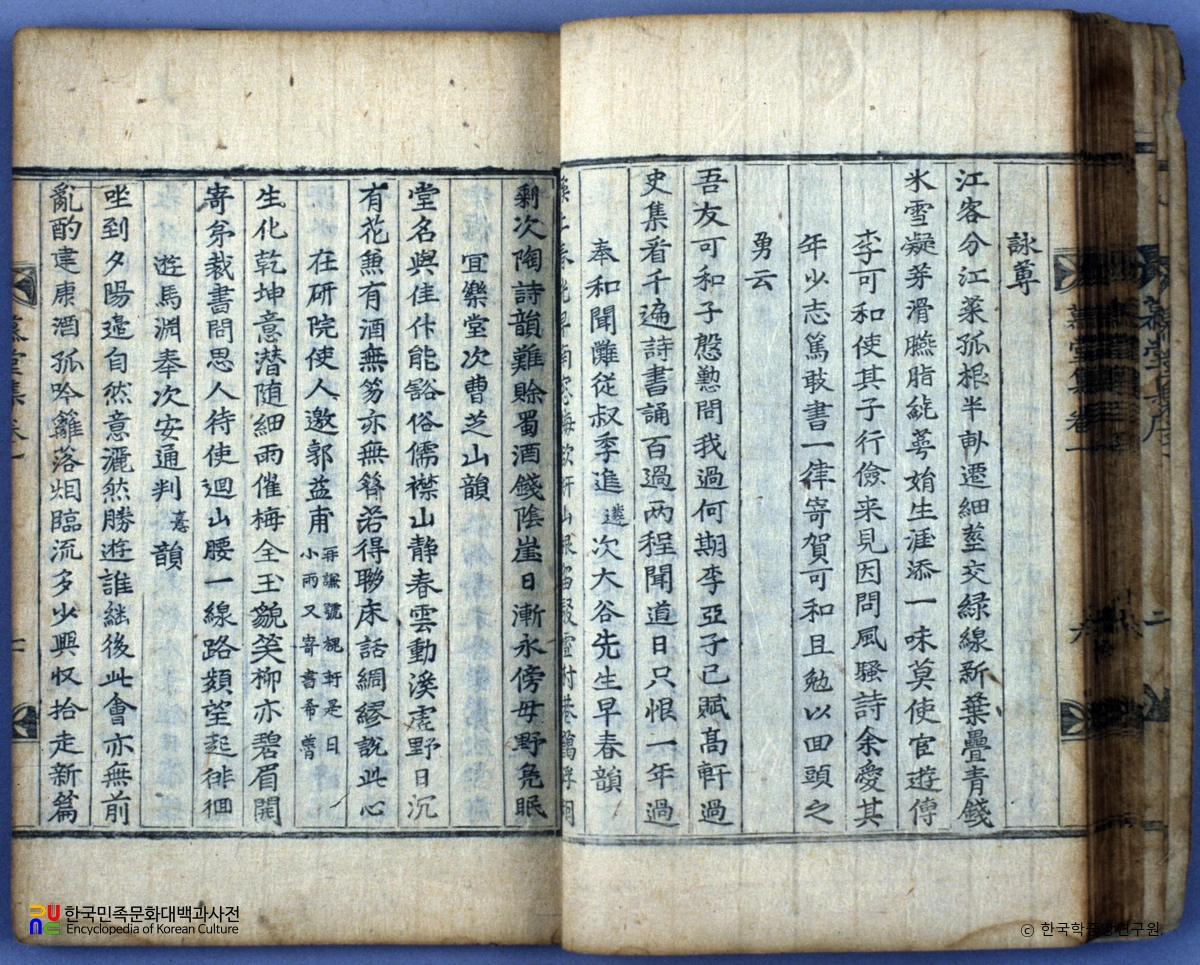 詠蓴
江客分江菜孤根半畝遷細莖交緑線新葉疊青錢
氷雪凝芽滑臙脂毓萼娟生涯添一味莫使官遊傳
李可和使其子行儉来見因問風騷詩余愛其
年少志篤敢書一律寄賀可和且勉以回頭之
勇云
吾友可和子慇懃問我過何期李亞子已賦高軒過
史集看千遍詩書誦百過两程聞道日只恨一年過
奉和聞灘従叔季進遴次大谷先生早春韻
剩次陶詩韻難賖蜀酒錢陰崖日漸永傍母野鳧眠
宜樂堂次曹芝山韻
堂名與佳作能豁俗儒襟山静春雲動溪虚野日沉
有花兼有酒無笏亦無簪若得聯床話綢繆說此心
在研院使人邀郭益甫再謙號槐軒是日小雨又寄書希魯
生化乾坤意潜随細雨催梅全玉貌笑柳亦碧眉開
寄弟裁書問思人待使迴山腰一線路頻望起徘徊
遊馬淵奉次安通判憙韻
坐到夕陽邊自然意灑然勝遊誰継後此會亦無前
亂酌建康酒孤吟籬落烟臨流多少興収拾走新篇
慕堂集卷一
慕堂集序
二
六
한국민족문화대백과사전
Encyclopedia of Korean Culture
© 한국학중앙연구원